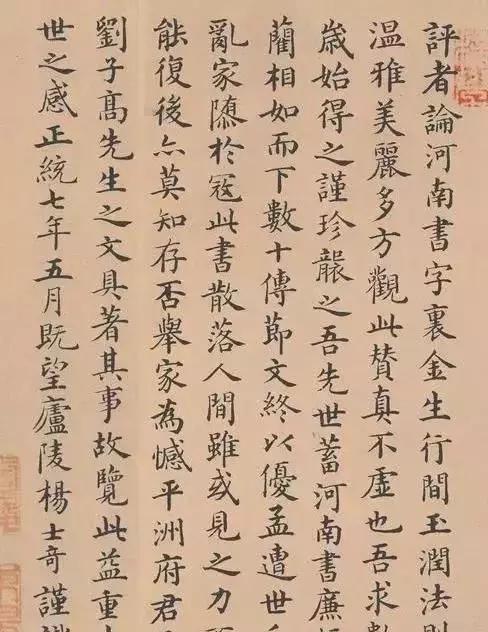 評者論河南書字裏金生行間玉潤法則
温雅美麗多方觀此賛真不虛也吾求數
歲始得之謹珍襲之吾先世蓄河南書廉頗
藺相如而下數十傳節文終以優孟遭世
亂家隨於寇此書散落人間雖或見之力
能復後亦莫知存否舉家為憾平洲府君
劉子高先生之文具著其事故覽此益重
世之感正統七年五月既望廬陵楊士奇謹識